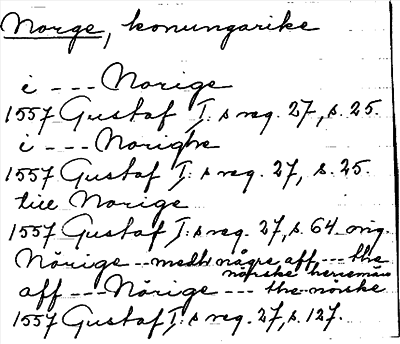 Norge, konungarike
i --- Norige
1557 Gustaf I:s reg. 27, s. 25.
i --- Norighe
1557 Gustaf I:s reg. 27, s. 25.
till Norige
1557 Gustaf I:s reg. 27, s. 64 orig.
Nörige --- medh någre aff --- the
nörske herremän
aff --- Nörige --- the nörske
1557 Gustaf I:s reg. 27, s. 127.